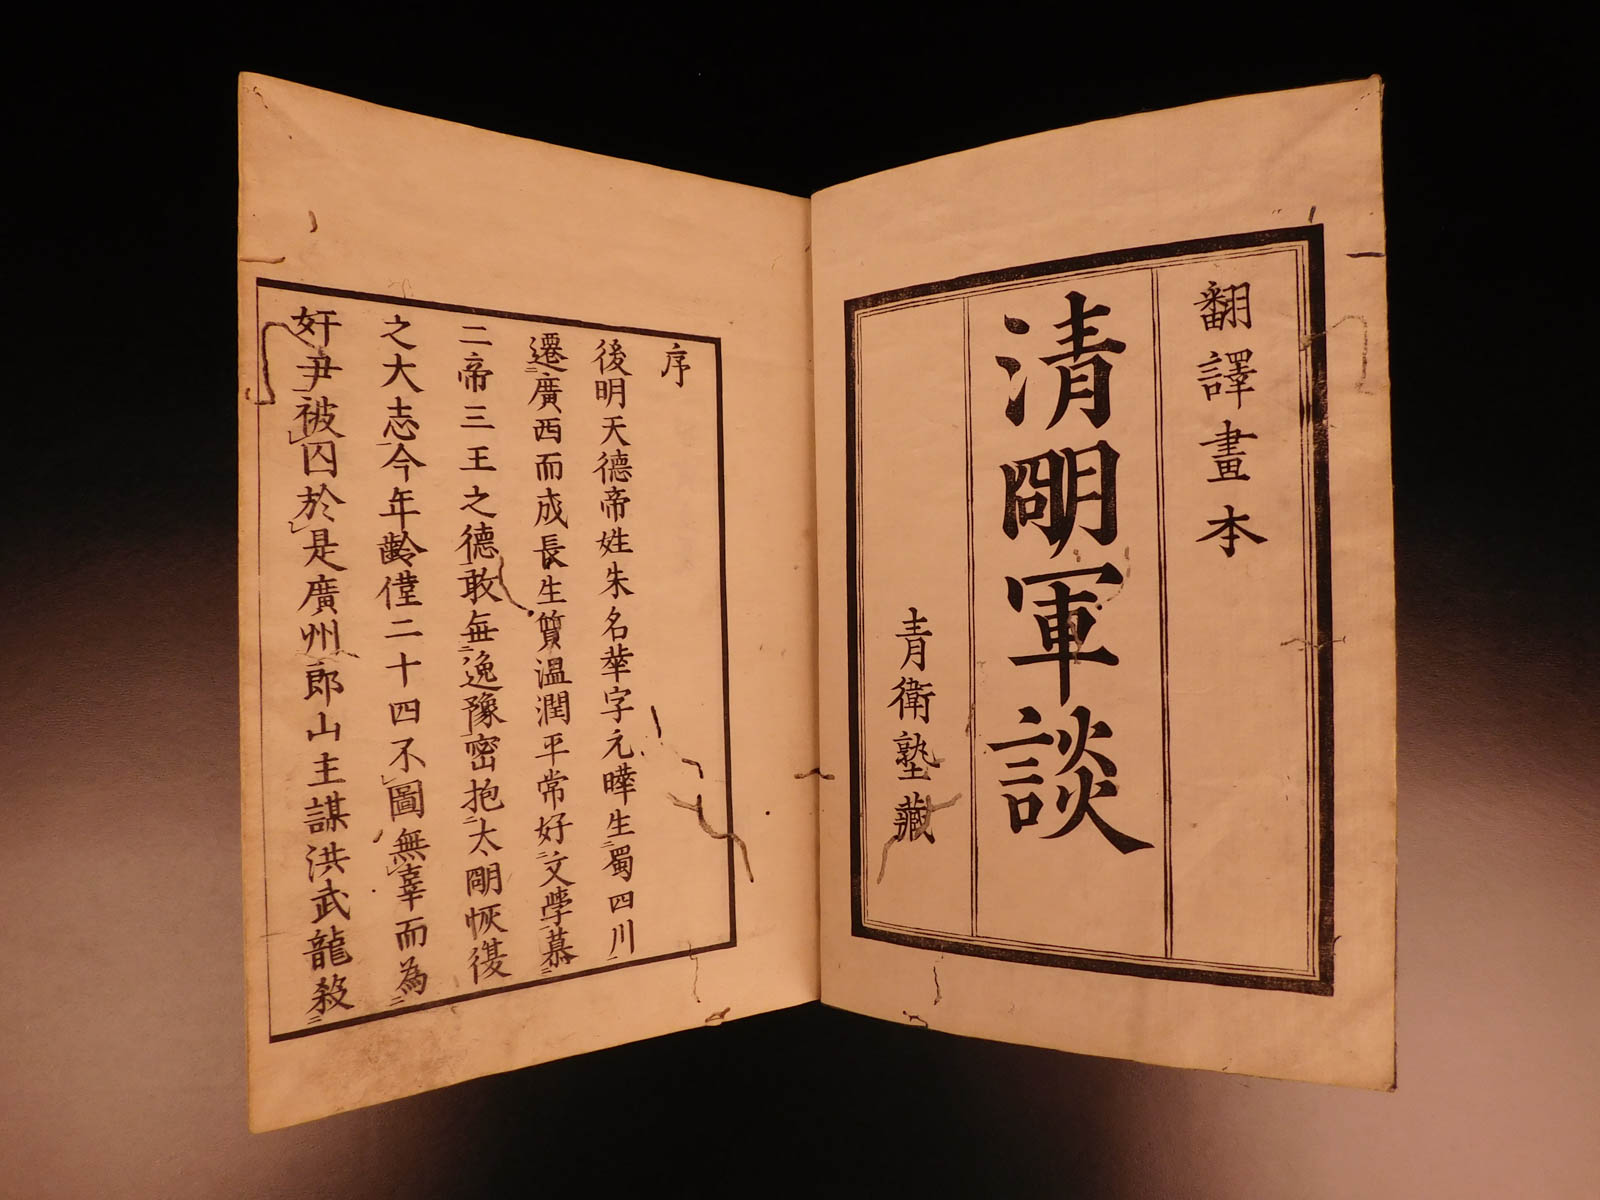 翻譯畫本
清朙軍談
青衛塾藏
序
後明天德帝姓朱名華字元曄生蜀四川
遷廣西而成長生質温潤平常好文學慕
二帝三王之德敢無逸豫密抱大朙恢復
之大志今年齡僅二十四不圖無辜而為
奸尹被囚於是廣州郎山主謀洪武龍殺